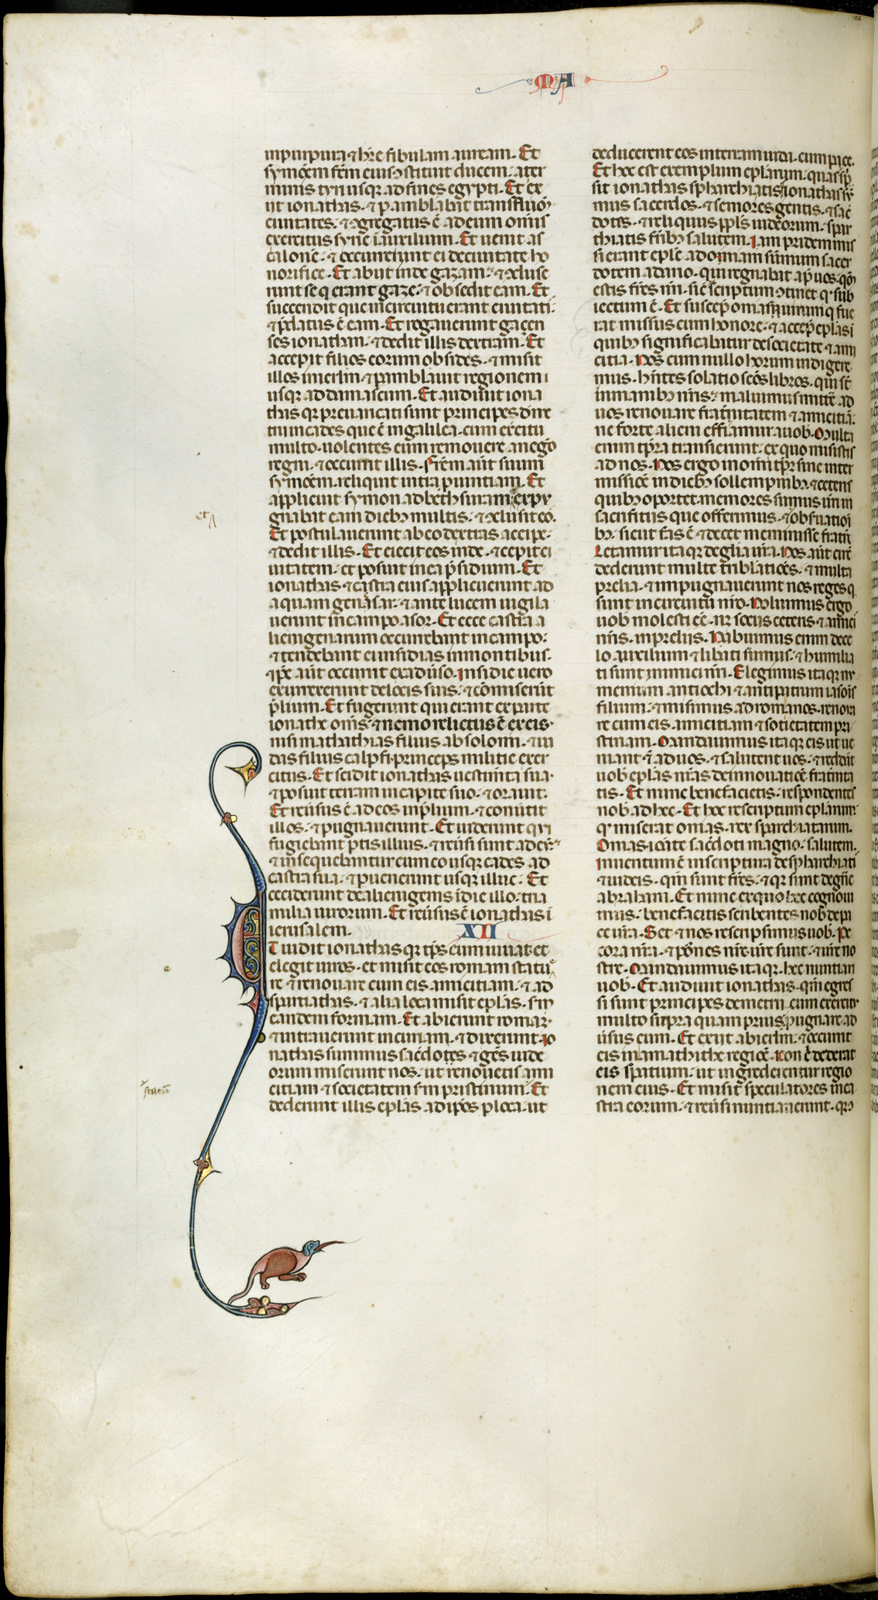 MA
in purpura ⁊ hr̄e fibulam auream. Et
symōem frēm eius 9stituit ducem. a ter
minis tyri usq̨ ad fines egypti. Et ex
iit ionathas. ⁊ ꝑamblabat trans fluuiū
ciuitates. ⁊ 9gregatus ē ad eum omīs
exercitus syrie ī auxilium. Et uenit as
calonē. ⁊ occurrerunt ei de ciuitate ho
norifice. Et abiit inde gazam. ⁊ 9cluse
runt se qui erant gaze. ⁊ obsedit eam. Et
succendit que in circuitu erant ciuitati.
⁊ p̄datus ē eam. Et rogauerunt gacen
ses ionathan. ⁊ dedit illis dextram. Et
accepit filios eorum obsides. ⁊ misit
illos in ierlm̄. ⁊ ꝑamblauit regionem
usq̨ ad damascum. Et audiuit iona
thas q̨ preuaricati sunt principes deme
trii in cades que ē in galilea. cum exercitu
multo. uolentes eum remouere a nego
regni. ⁊ occurrit illis. Frēm aūt suum
symōem reliquit intra prouintiam. Et
applicuit symon ad bethsuram. ⁊ expu
gnabat eam dieb3 multis. ⁊ 9clusit eos.
et
Et postulauerunt ab eo dextras accipe.
⁊ dedit illis. Et eiecit eos inde. ⁊ cepit ci
uitatem. et posuit in ea p̄sidium. Et
ionathas. ⁊ castra eius applicuerunt ad
aquam genasar. ⁊ ante lucem uigila
uerunt in campo asor. Et ecce castra a
lienigenarum occurrebant in campo.
⁊ tendebant ei insidias in montibus.
ipē aūt occurrit ex aduerso. insidie uero
exurrexerunt de locis suis. ⁊ cōmiserūt
p̄lium. Et fugerunt qui erant ex parte
ionathe om̄s. ⁊ nemo relictus ē ex eis.
nisi mathathias filius absolomi. ⁊ iu
das filius calphi. princeps militie exer
citus. Et scidit ionathas uestimta sua.
⁊ posuit terram in capite suo. ⁊ orauit.
Et reūsus ē ad eos in p̄lium. ⁊ conūtit
illos. ⁊ pugnauerunt. Et uiderunt qui
fugiebant ꝑtis illius. ⁊ reūsi sunt ad eū.
⁊ insequebantur cum eo usq̨ cades ad
castra sua. ⁊ ꝑuenerunt usq̨ illuc. Et
ceciderunt de alienigenis ī die illo. tria
milia uirorum. Et reūsus ē ionathas ī
ierusalem. XII
Et uidit ionathas q̨ tp̄s eum iuuat. et
elegit uiros. et misit eos romam statu
e
re ⁊ renouare cum eis amicitiam. ⁊ ad
spartiathas. ⁊ alia loca misit ep̄las. sm̄
eandem formam. Et abierunt romam.
⁊ intrauerunt in curiam. ⁊ dixerunt. io
nathas summus sac̄dotes. ⁊ gēs iude
orum miserunt nos. ut renouetis ami
citiam ⁊ societatem sm̄ pristinum. Et
statum
dederunt illis ep̄las ad ip̄os ꝑ loca. ut
deducerent eos in terram iuda. cum pace.
Et hoc est exemplum ep̄larum. quas sp̄
sit ionathas spharchiatis. ionathas sū
mus sacerdos. ⁊ seniores gentis. ⁊ sac̄
dotes. ⁊ reliquus pp̄ls iudeorum. spar
thiatis frīb3 salutem. Iam pridem mis
si erant ep̄le ad oniam sūmum sacer
dotem ad ario. qui regnabat ap̄ uos. qm̄
estis frēs nri. sic̄ rescriptum 9tinet q̨ sub
iectum ē. Et suscep̄ onias uirum q̨ fue
rat missus cum honore. ⁊ accep̄ ep̄las ī
quib3 significabatur de societate ⁊ ami
citia. Nos cum nullo horum indigere
mus. hn̄tes solatio scōs libros. qui st̄
in manib3 nr̄is. maluimus mitt̄e ad
uos renouare fratnitatem ⁊ amicitiā.
ne forte alieni efficiamur a uob. Multa
enim tp̄ra transierunt. ex quo misistis
ad nos. Nos ergo in omi tp̄r sine inter
missiōe in dieb3 sollempnib3. ⁊ ceteris
quib3 oportet. memores sumus uri in
sacrifitiis que offerimus. ⁊ obseruatioi
b3. sicut fas ē ⁊ decet meminisse fratrū
Letamur itaq̨ de glia uīa. Nos aūt circū
dederunt multe tribulatiōes. ⁊ multa
prelia. ⁊ impugnauerunt nos reges q̨
sunt in circuitu nr̄o. Noluimus ergo
uob molesti eē. nec sociis ceteris. ⁊ amici
nr̄is. in preliis. Habuimus enim de ce
lo auxilium ⁊ libati sumus. ⁊ humilia
ti sunt inimici nri. Elegimus itaq̨ nu
menium antiochi ⁊ antipatrum iasois
filium. ⁊ misimus ad romanos. renoua
re cum eis amicitiam ⁊ societatem pri
stinam. Mandauimus itaq̨ eis ut ue
niant ⁊ ad uos. ⁊ salutent uos. ⁊ reddāt
uob ep̄las nr̄as de innouatiōe fraternita
tis. Et nunc benefacietis. respondentes
nob ad hec. Et hoc rescriptum ep̄larum.
q̨ miserat onias. rex sparchiatarum.
Onias ionathe sac̄doti magno. salutem.
Inuentum ē in scriptura de spharchiati
⁊ iudeis. qm̄ sunt frēs. ⁊ q̨ sunt de gn̄e
abraham. Et nunc ex quo hec cognoui
mus. benefacitis scribentes nob de pa
ce uīa. Set ⁊ nos rescripsimus uob. Pe
cora nr̄a. ⁊ p̄ōnes nr̄e. uīre sunt. ⁊ uīre no
stre. Mandauimus itaq̨. hec nuntiari
uob. Et audiuit ionathas. qm̄ egres
si sunt principes demetrii. cum exercitu
multo supra quam prius. pugnare ad
ūsus eum. Et exiit ab ierlm̄. ⁊ occurrit
eis in amathithe regiōe. non ē dederat
eis spatium. ut ingrederentur regio
nem eius. Et misit speculatores in ca
stra eorum. ⁊ reūsi nuntiauerunt. qd̄